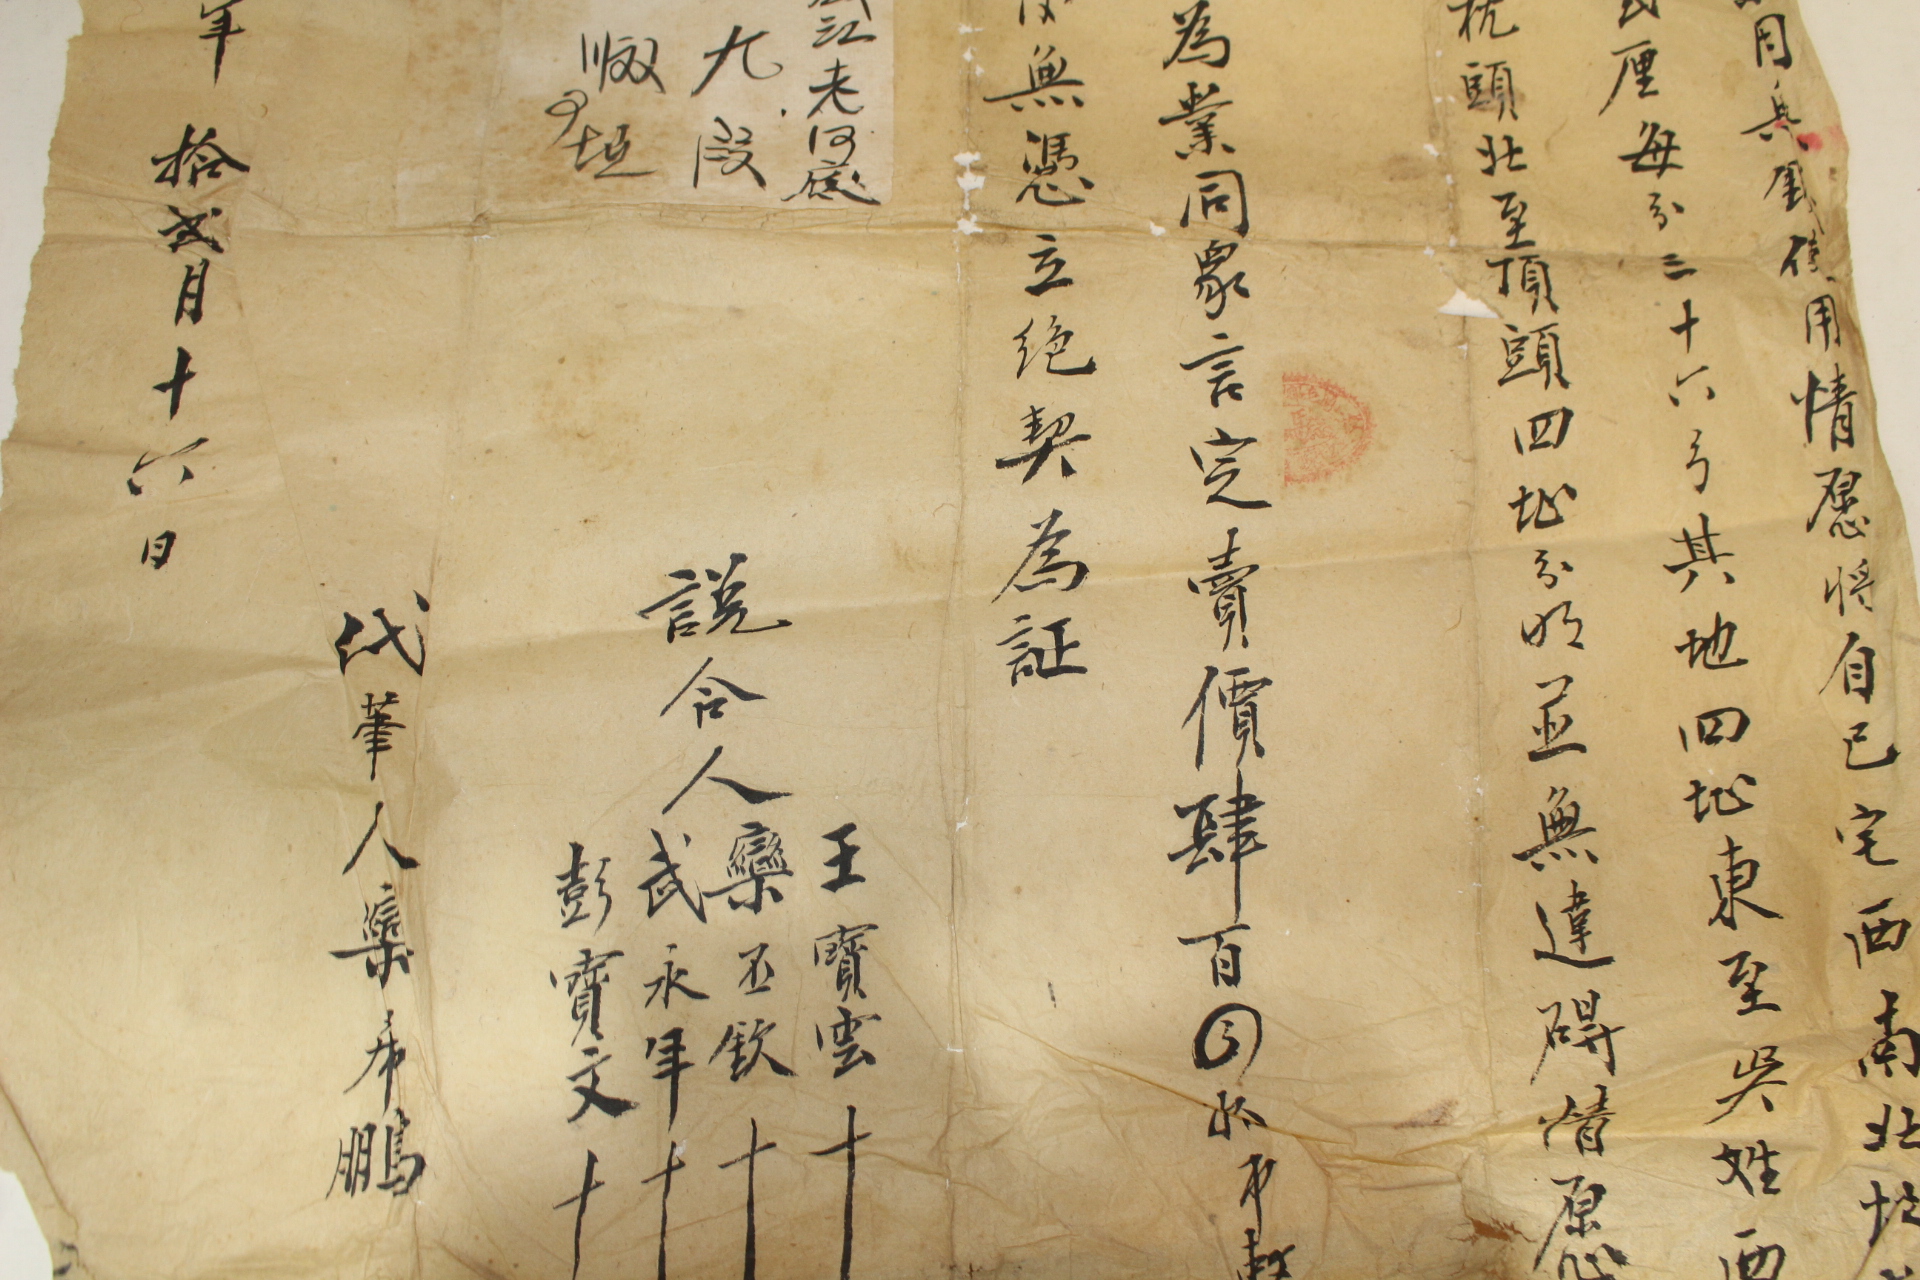 用兵 使用情愿将自己宅西南北
厘每分三十六弓其地四址東至吳姓西
枕頭北至頂頭四址分明並無違碍情愿
為業同眾言定賣價肆百 市
無憑立絶契為証
江老河
九段
順
垣
說合人
王寶雲十
欒丕欽十
武永年十
彭寶文十
代筆人欒希鵬
年拾弍月十六日